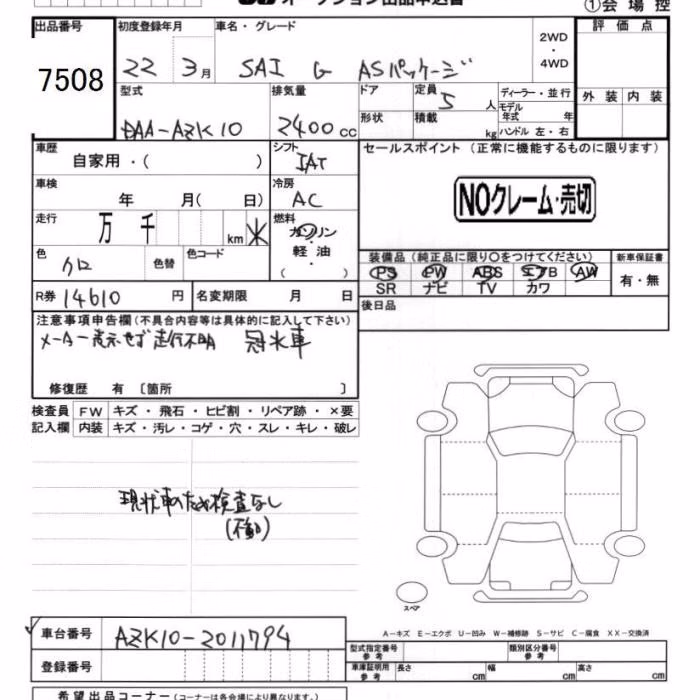 オークション出品申込書 ①会場控
出品番号 初度登録年月 車名・グレード 評価点
7508 22 3月 SAI G ASパッケージ 2WD・4WD
型式 排気量 ドア 定員 5人 ディーラー・並行 外装 内装
DAA-AZK10 2400cc 形状 積載 kg モデル年式 年 ハンドル 左・右
車歴 シフト セールスポイント (正常に機能するものに限ります)
自家用・( ) IAT
車検 冷房 NOクレーム・売切
年 月( 日) AC
走行 万 千 km 燃料
ガソリン・軽油・( )
色 クロ 色替 色コード 装備品 (純正品に限り〇をつけてください) 新車保証書
PS PW ABS エアB AW 有・無
SR ナビ TV カワ
R券 14610円 名変期限 月 日 後日品
注意事項申告欄 (不具合内容等は具体的に記入して下さい)
メーター表示せず 走行不明 冠水車
修復歴 有 〔箇所 〕
検査員 FW キズ・飛石・ヒビ割・リペア跡・×要
記入欄 内装 キズ・汚レ・コゲ・穴・スレ・キレ・破レ
現状車のため検査なし
(不動)
スペア
車台番号 AZK10-2011794
A−キズ E−エクボ U−凹み W−補修跡 S−サビ C−腐食 XX−交換済
登録番号 型式指定番号 参考 類別区分番号 参考
車庫証明用 参考 長さ cm 幅 cm 高さ cm
希望出品コーナー (コーナーは各会場により異なります。)